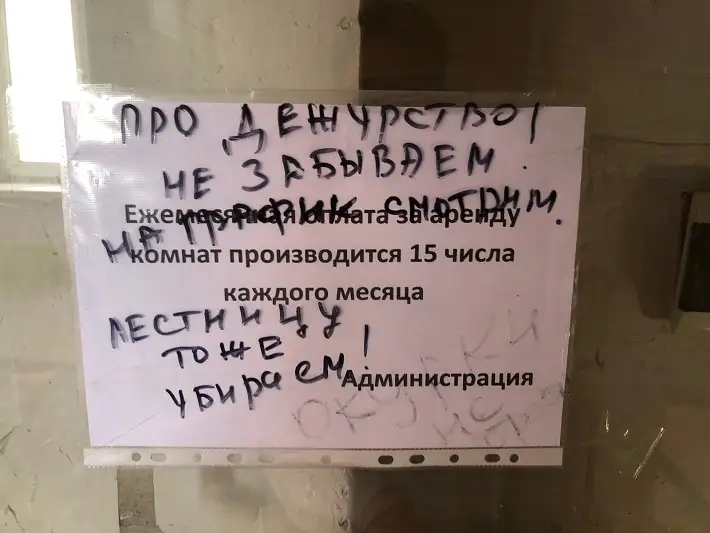 ПРО ДЕЖУРСТВО!
НЕ ЗАБЫВАЕМ.
Ежемесячная оплата за аренду
НА ГРАФИК СМОТРИМ.
комнат производится 15 числа
каждого месяца
ЛЕСТНИЦУ
ТОЖЕ
УБИРАЕМ!
Администрация
ОКУРКИ
НЕ